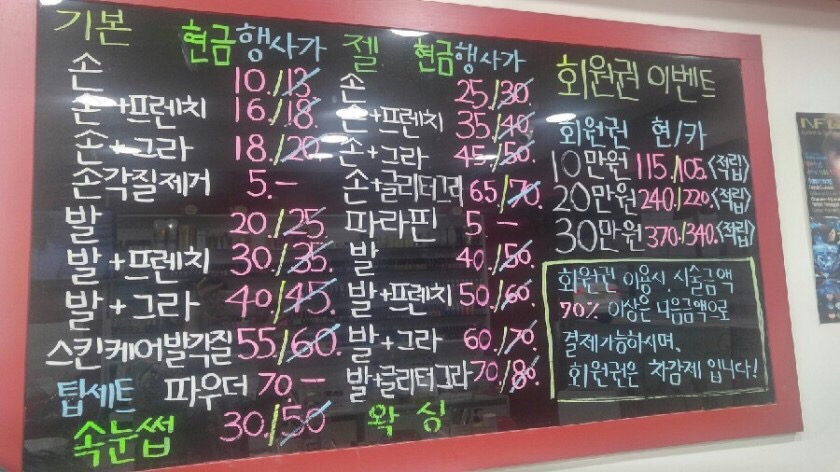 기본 현금행사가
손 10./13.
손+프렌치 16./18.
손+그라 18./20.
손각질제거 5.-
발 20./25.
발+프렌치 30./35.
발+그라 40./45.
스킨케어발각질 55./60.
팁세트 파우더 70.-
속눈썹 30./50
젤 현금행사가
손 25./30.
손+프렌치 35./40.
손+그라 45./50.
손+글리터그라 65./70.
파라핀 5.-
발 40./50.
발+프렌치 50./60.
발+그라 60./70.
발+글리터그라 70./80.
왁싱
회원권 이벤트
회원권 현/카
10만원 115./105.<적립>
20만원 240./220.<적립>
30만원 370./340.<적립>
회원권 이용시, 시술금액
70% 이상은 나음금액으로
결제가능하시며,
회원권은 차감제 입니다!